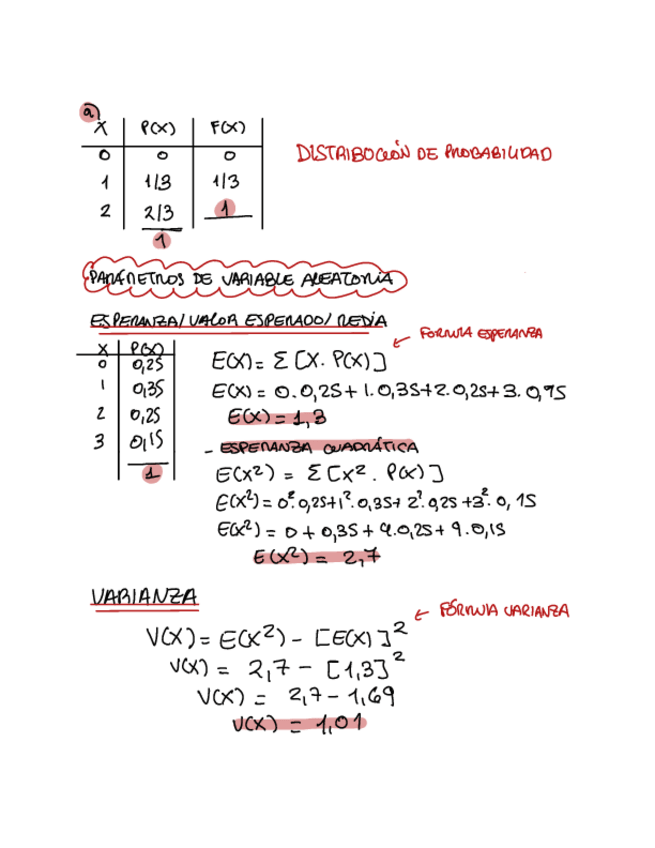 a)
X P(X) F(X)
0 0 0
1 1/3 1/3
2 2/3 1
1
DISTRIBUCIÓN DE PROBABILIDAD
PARÁMETROS DE VARIABLE ALEATORIA
ESPERANZA/ VALOR ESPERADO/ MEDIA
← FORMULA ESPERANZA
X P(X)
0 0,25
1 0,35
2 0,25
3 0,15
1
E(X) = Σ [X. P(X)]
E(X) = 0.0,25+1.0,35+2.0,25+3.0,15
E(X) = 1,3
- ESPERANZA CUADRÁTICA
E(X²) = Σ [X². P(X)]
E(X²) = 0².0,25+1².0,35+2².0,25+3².0,15
E(X²) = 0 + 0,35 + 4.0,25 + 9.0,15
E(X²) = 2,7
VARIANZA
← FÓRMULA VARIANZA
V(X) = E(X²) - [E(X)]²
V(X) = 2,7 - [1,3]²
V(X) = 2,7 - 1,69
V(X) = 1,01